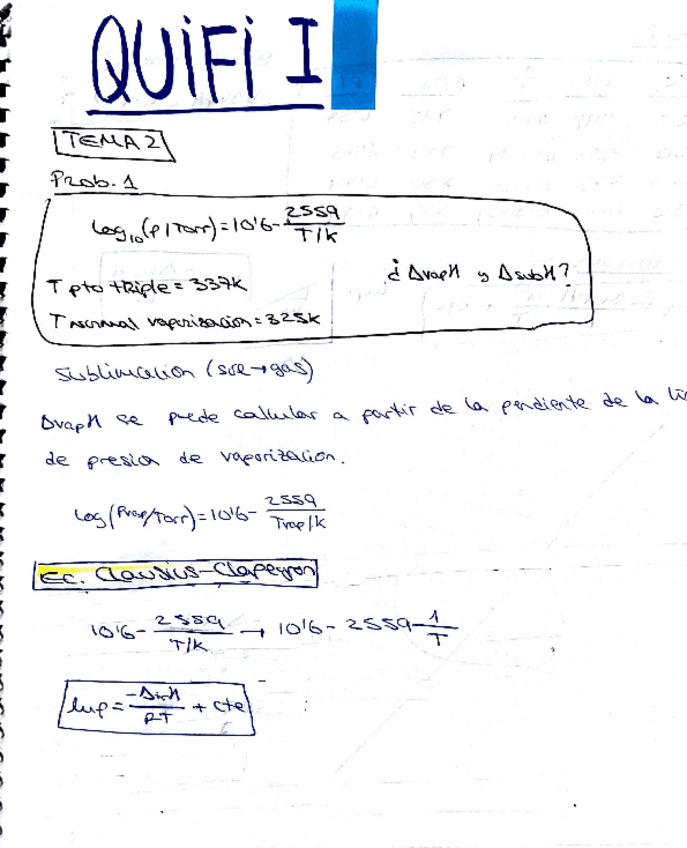 QUIFI I
TEMA 2
Prob. 1
log₁₀(P/Torr)=10'6-2559/T/K
T pto triple = 337K
¿ΔvapH y ΔsubH?
T normal vaporización = 325K
Sublimación (sol→gas)
ΔvapH se puede calcular a partir de la pendiente de la
de presión de vaporización.
log(Pvap/Torr)=10'6-2559/Tvap/K
Ec. Clausius-Clapeyron
10'6-2559/T/K → 10'6-2559 1/T
lnp=-ΔtrH/RT + cte